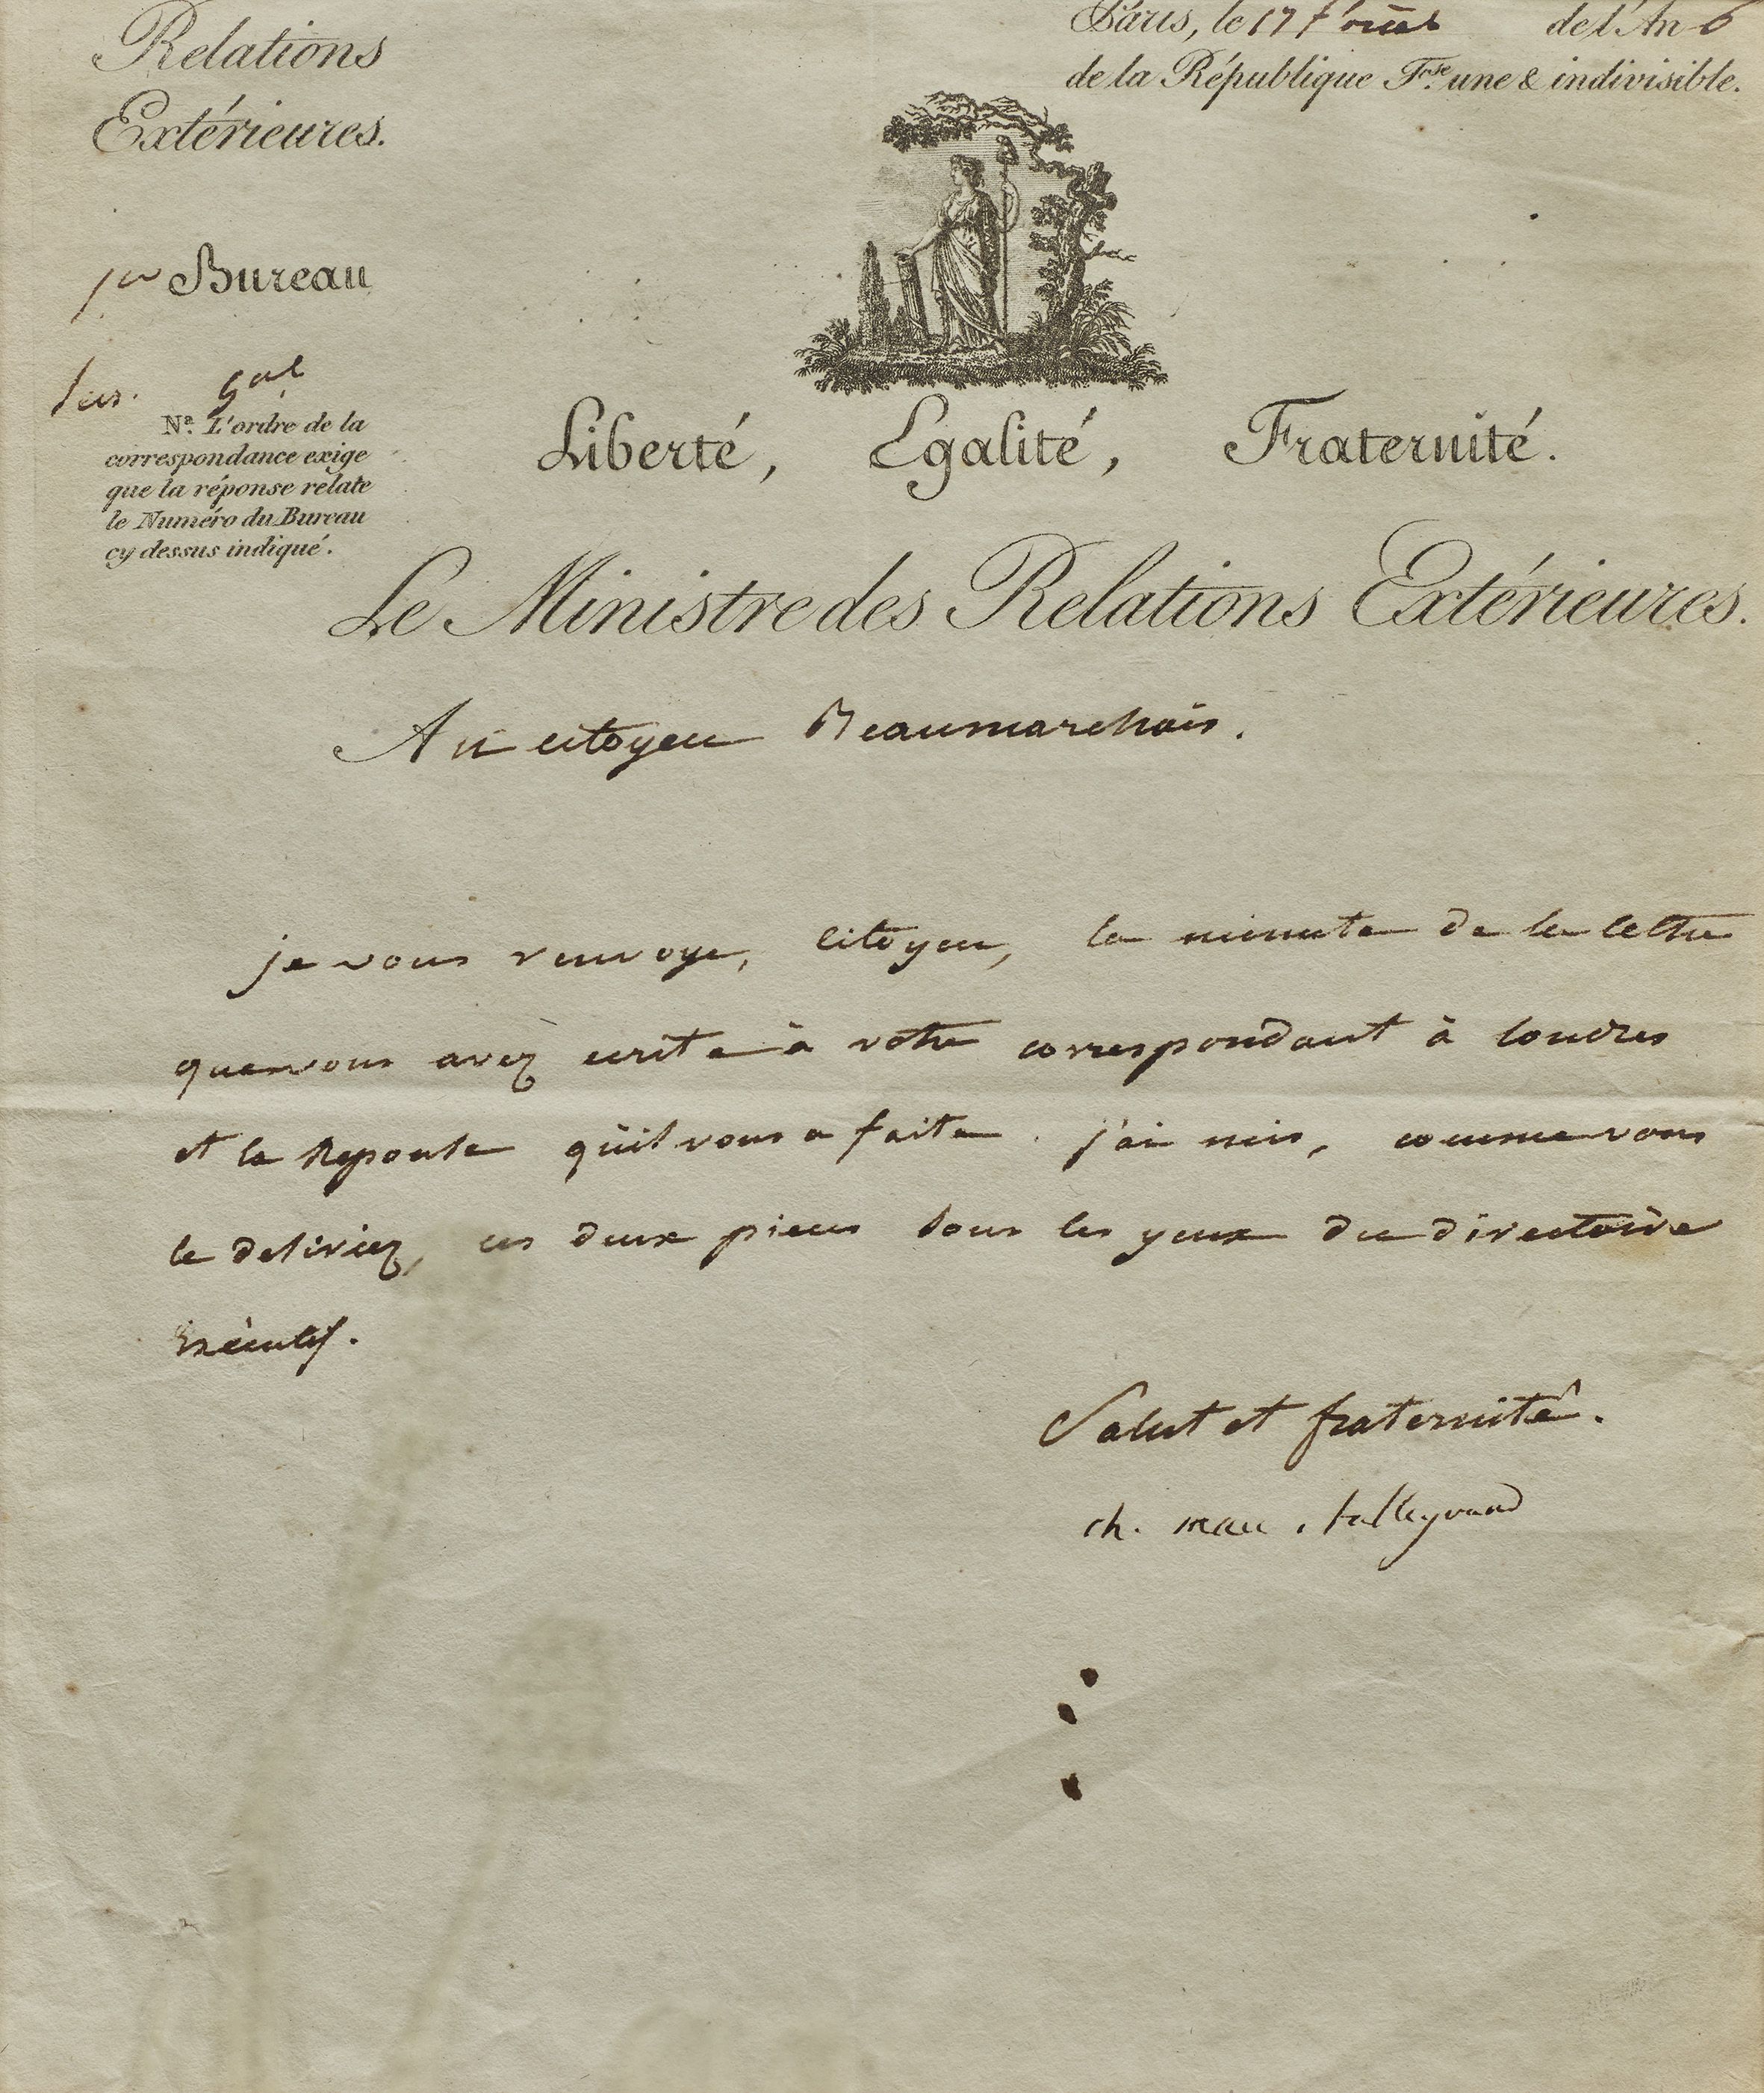 Relations
Extérieures.
Paris, le 17 de l'An 6
de la République F.se une & indivisible.
1er Bureau
gal
Na. L'ordre de la
correspondance exige
que la réponse relate
le Numéro du Bureau
cy dessus indiqué.
Liberté, Egalité, Fraternité.
Le Ministre des Relations Extérieures.
Au citoyen Beaumarchais.
je vous renvoye, citoyen, la minute de la lettre
que vous avez ecrite à votre correspondant à londres
et la Reponse qu'il vous a faite. j'ai mis, comme vous
le desiriez, ces deux pieces sous les yeux du directoire
Exécutif.
Salut et fraternité.
ch. mau. talleyrand